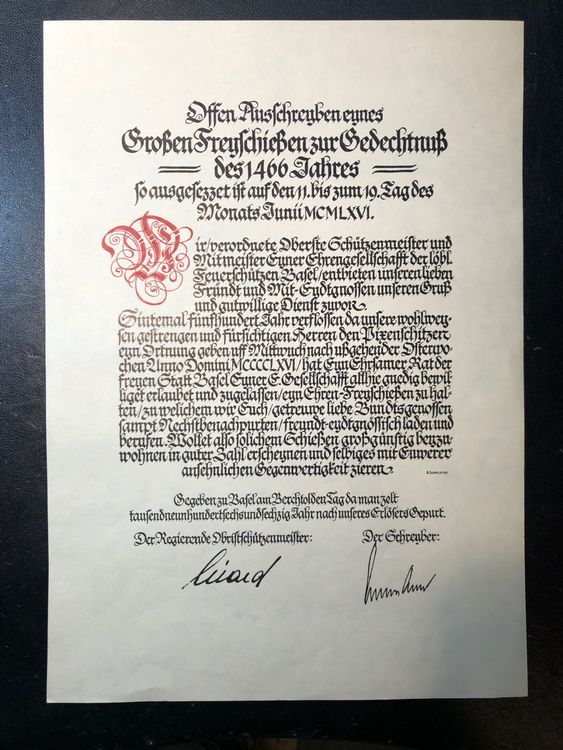 Offen Ausschreyben eynes
Großen Freyschießen zur Gedechtnuß
des 1466 Jahres
so ausgesezzet ist auf den 11. bis zum 19. Tag des
Monats Junii MCMLXVI.
Wir/verordnete Oberste Schützenmeister und
Mitmeister Eyner Ehrengesellschafft der löbl.
Feuerschützen Basel/entbieten unseren lieben
Fründt und Mit-Eydtgnossen unseren Gruß
und gutwillige Dienst zuvor.
Sintemal fünfhundert Jahr verflossen da unsere wohlwey-
sen gestrengen und fürsichtigen Herren den Pixenschitzen
eyn Ortnung geben uff Mittwuch nach ußgehender Osterwo-
chen Anno Domini MCCCCLXVI/hat Eyn Ehrsamer Rat der
freyen Statt Basel Eyner E. Gesellschafft allhie gnedig bewil-
liget erlaubet und zugelassen/eyn Ehren-Freyschießen zu hal-
ten/zu welichem wir Euch/getreuwe liebe Bundtsgenossen
sampt Nechstbenachpurten/freundt-eydtgnössisch laden und
beruffen. Wollet also solichem Schießen großgünstig beyzu-
wohnen in guter Zahl erscheynen und selbiges mit Euwerer
ansehnlichen Gegenwertigkeit zieren.
Gegeben zu Basel am Berchtolden Tag da man zelt
tausendneunhundertsechsundsechzig Jahr nach unseres Erlösers Gepurt.
Der Regierende Obristschützenmeister: Der Schreyber: